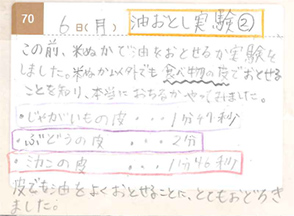 70
6日(月) 油おとし実験②
この前、米ぬかで油をおとせるか実験を
しました。米ぬか以外でも食べ物の皮でおとせる
ことを知り、本当におちるかやってみました。
・じゃがいもの皮・・・1分49秒
・ぶどうの皮・・・2分
・ミカンの皮・・・1分46秒
皮でも油をよくおとせることに、とてもおどろき
ました。